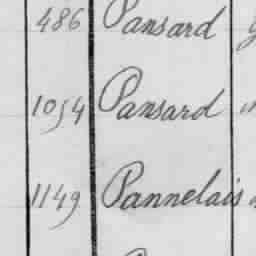 486 Pansard
1054 Pansard
1149 Pannelais